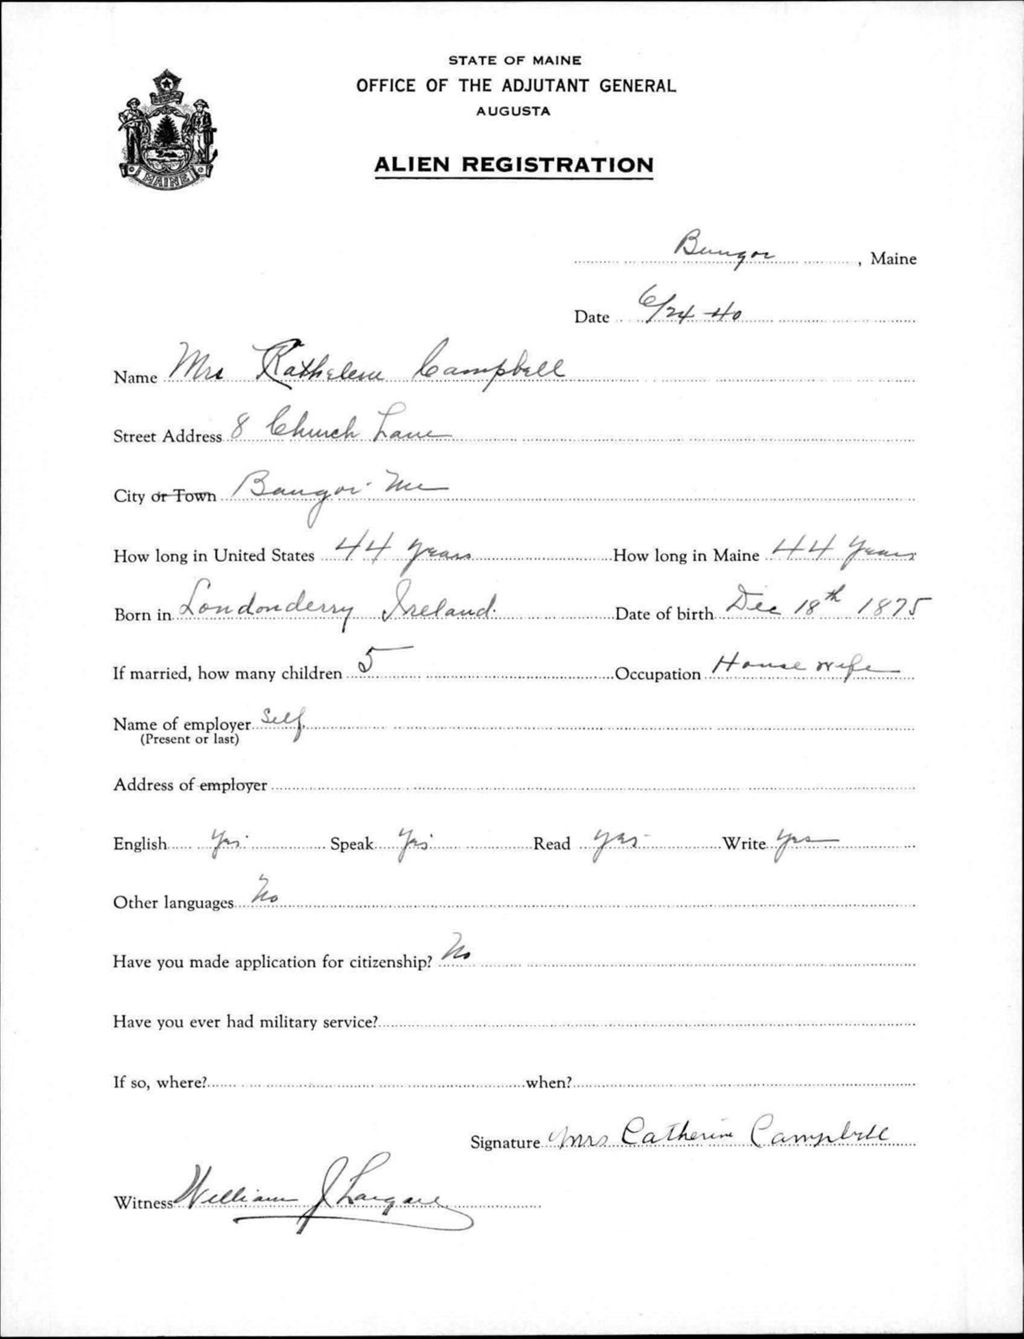 STATE OF MAINE
OFFICE OF THE ADJUTANT GENERAL
AUGUSTA
ALIEN REGISTRATION
MAINE
Bangor, Maine
Date 6/24-40
Name Mrs Kathelene Campbell
Street Address 8 Church Lane
City or Town Bangor Me
How long in United States 44 years How long in Maine 44 Years
Born in Londonderry Ireland. Date of birth Dec 18th 1875
If married, how many children 5 Occupation House wife
Name of employer Self
(Present or last)
Address of employer
English Yes Speak Yes Read Yes Write Yes
Other languages No
Have you made application for citizenship? No
Have you ever had military service?
If so, where? when?
Signature Mrs Catherine Campbell
Witness William J